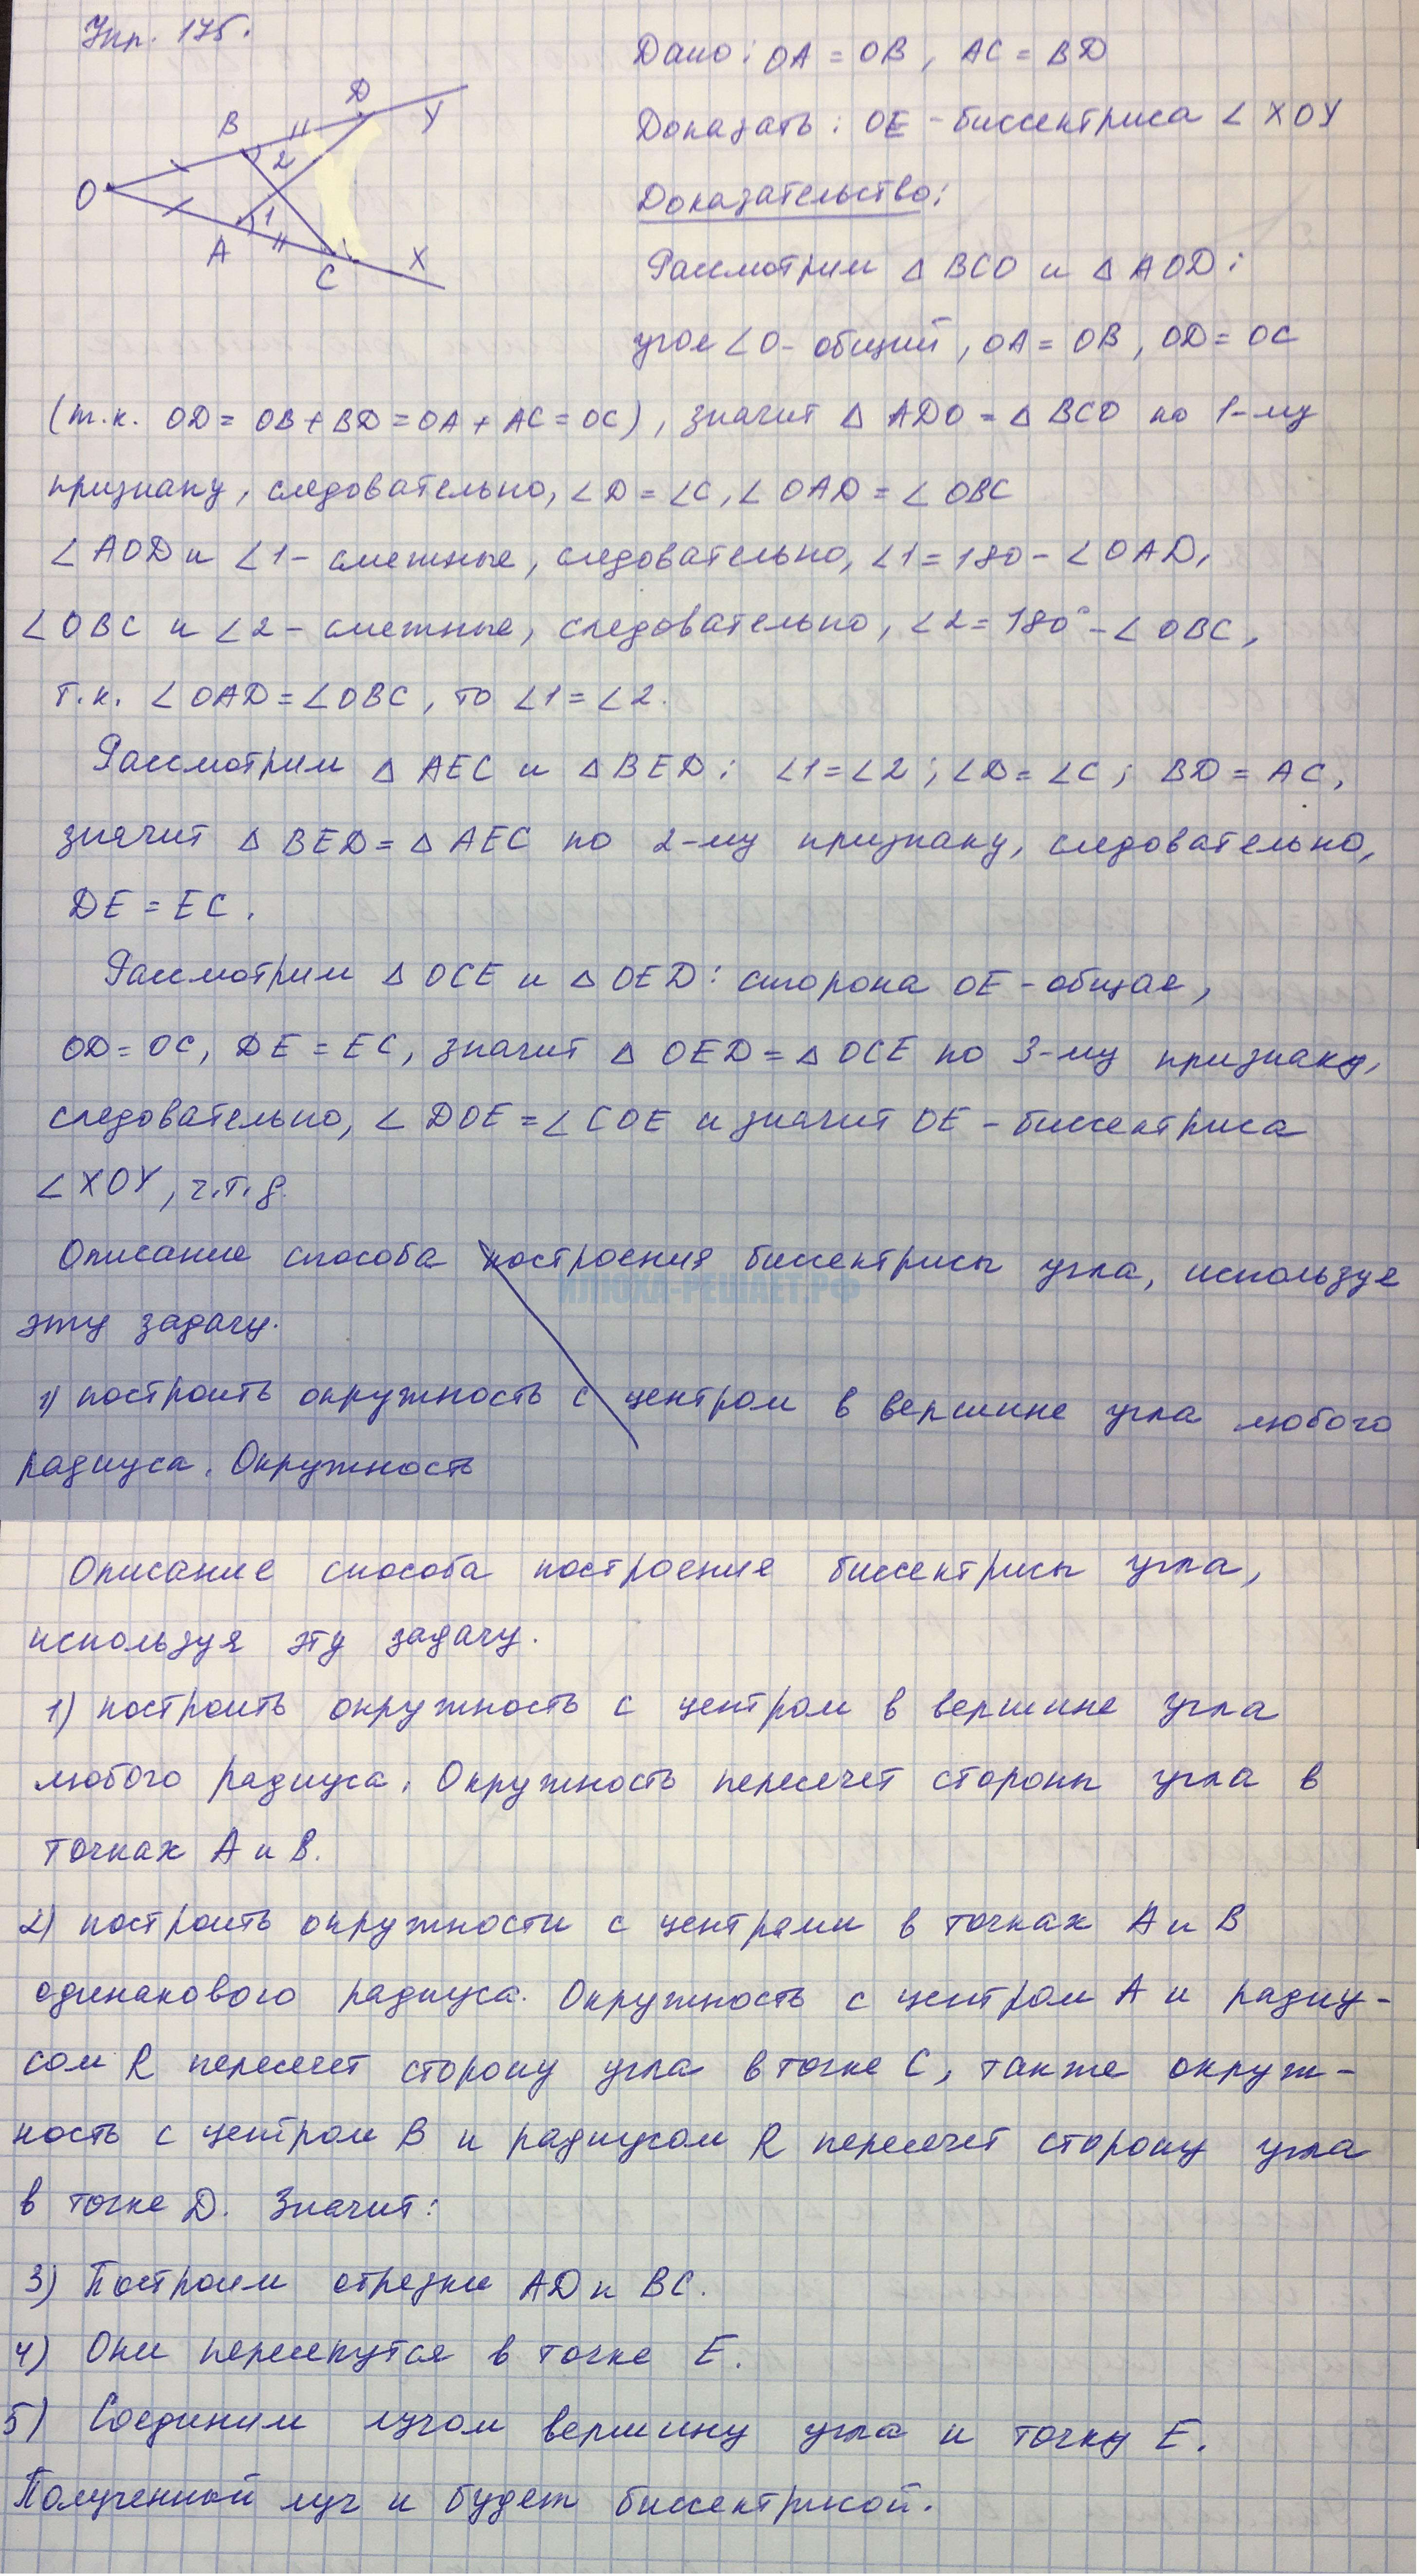 Упр. 175.
Дано: OA = OB, AC = BD
Доказать: OE - биссектриса ∠ XOY
Доказательство:
D
Y
B
2
O
1
A
C
X
Рассмотрим △ BCO и △ AOD:
угол ∠O - общий, OA = OB, OD = OC
(т.к. OD = OB + BD = OA + AC = OC), значит △ ADO = △ BCO по 1-му
признаку, следовательно, ∠D = ∠C, ∠OAD = ∠OBC
∠AOD и ∠1 - смежные, следовательно, ∠1 = 180 - ∠OAD,
∠OBC и ∠2 - смежные, следовательно, ∠2 = 180° - ∠OBC,
т.к. ∠OAD = ∠OBC, то ∠1 = ∠2.
Рассмотрим △ AEC и △ BED: ∠1 = ∠2; ∠D = ∠C; BD = AC,
значит △ BED = △ AEC по 2-му признаку, следовательно,
DE = EC.
Рассмотрим △ OCE и △ OED: сторона OE - общая,
OD = OC, DE = EC, значит △ OED = △ OCE по 3-му признаку,
следовательно, ∠DOE = ∠COE и значит OE - биссектриса
∠XOY, ч.т.д.
Описание способа построения биссектрисы угла, используя
эту задачу.
ИЛЮХА-РЕШАЕТ.РФ
1) построить окружность с центром в вершине угла любого
радиуса. Окружность
Описание способа построения биссектрисы угла,
используя эту задачу.
1) построить окружность с центром в вершине угла
любого радиуса. Окружность пересечет стороны угла в
точках A и B.
2) построить окружности с центрами в точках A и B
одинакового радиуса. Окружность с центром A и радиу-
сом R пересечет сторону угла в точке C, также окруж-
ность с центром B и радиусом R пересечет сторону угла
в точке D. Значит:
3) Построим отрезки AD и BC.
4) Они пересекутся в точке E.
5) Соединим лучом вершину угла и точку E.
Полученный луч и будет биссектрисой.